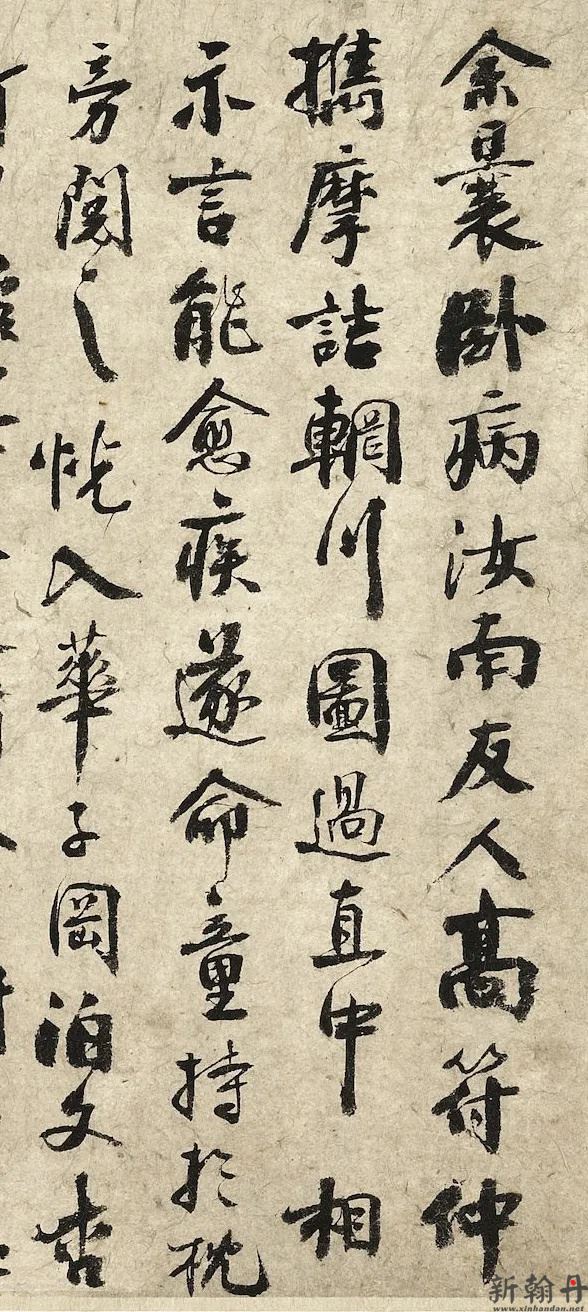 余曩卧病汝南友人髙符仲
攜摩詰輞川圖過直中相
示言能愈疾遂命童持於枕
旁閱之恍入華子岡泊文杏
新翰丹
www.xinhandan.net